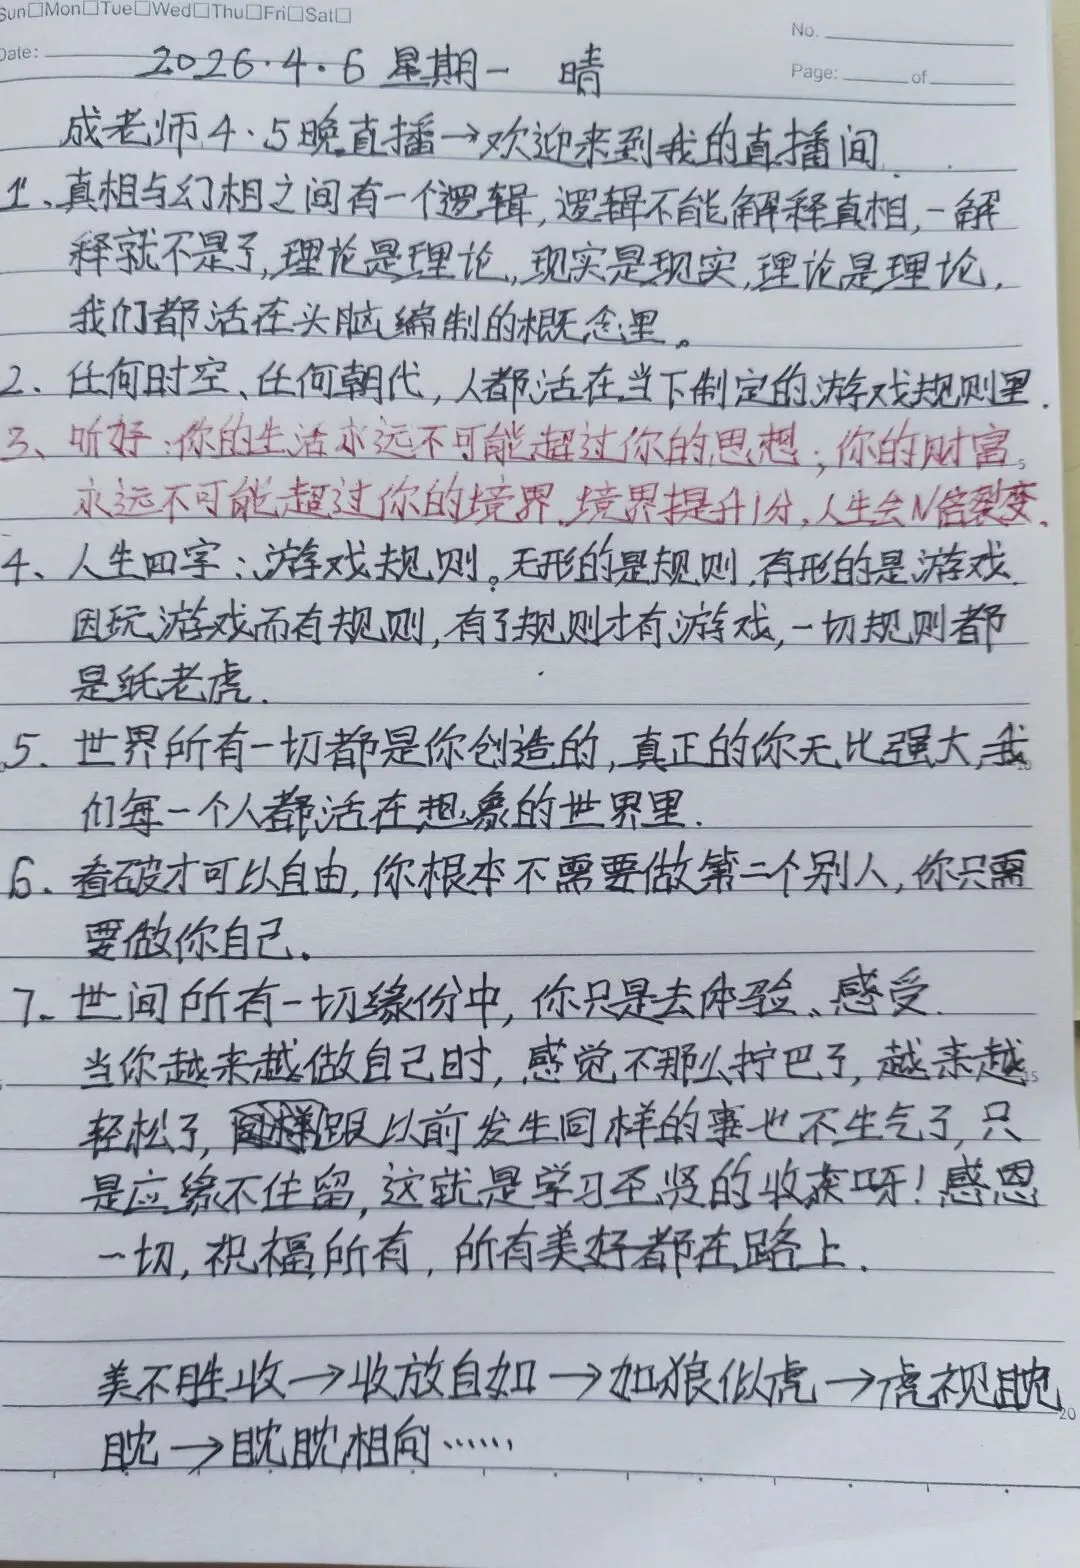 Sun□Mon□Tue□Wed□Thu□Fri□Sat□
No.
Date:
Page: of
2026.4.6 星期一 晴
成老师4.5晚直播→欢迎来到我的直播间.
1、真相与幻相之间有一个逻辑,逻辑不能解释真相,一解
释就不是了,理论是理论,现实是现实,理论是理论,
我们都活在头脑编制的概念里。
2、任何时空、任何朝代,人都活在当下制定的游戏规则里.
3、听好:你的生活永远不可能超过你的思想;你的财富
5
永远不可能超过你的境界.境界提升1分,人生会N倍裂变.
4、人生四字:游戏规则。无形的是规则.有形的是游戏.
因玩游戏而有规则,有了规则才有游戏,一切规则都
是纸老虎.
5、世界所有一切都是你创造的,真正的你无比强大,我
10
们每一个人都活在想象的世界里.
6、看破才可以自由,你根本不需要做第二个别人,你只需
要做你自己.
7、世间所有一切缘份中,你只是去体验、感受.
当你越来越做自己时,感觉不那么拧巴了,越来越
15
轻松了,跟以前发生同样的事也不生气了,只
是应缘不住留,这就是学习圣贤的收获呀!感恩
一切,祝福所有,所有美好都在路上.
美不胜收→收放自如→如狼似虎→虎视眈
20
眈→眈眈相向……